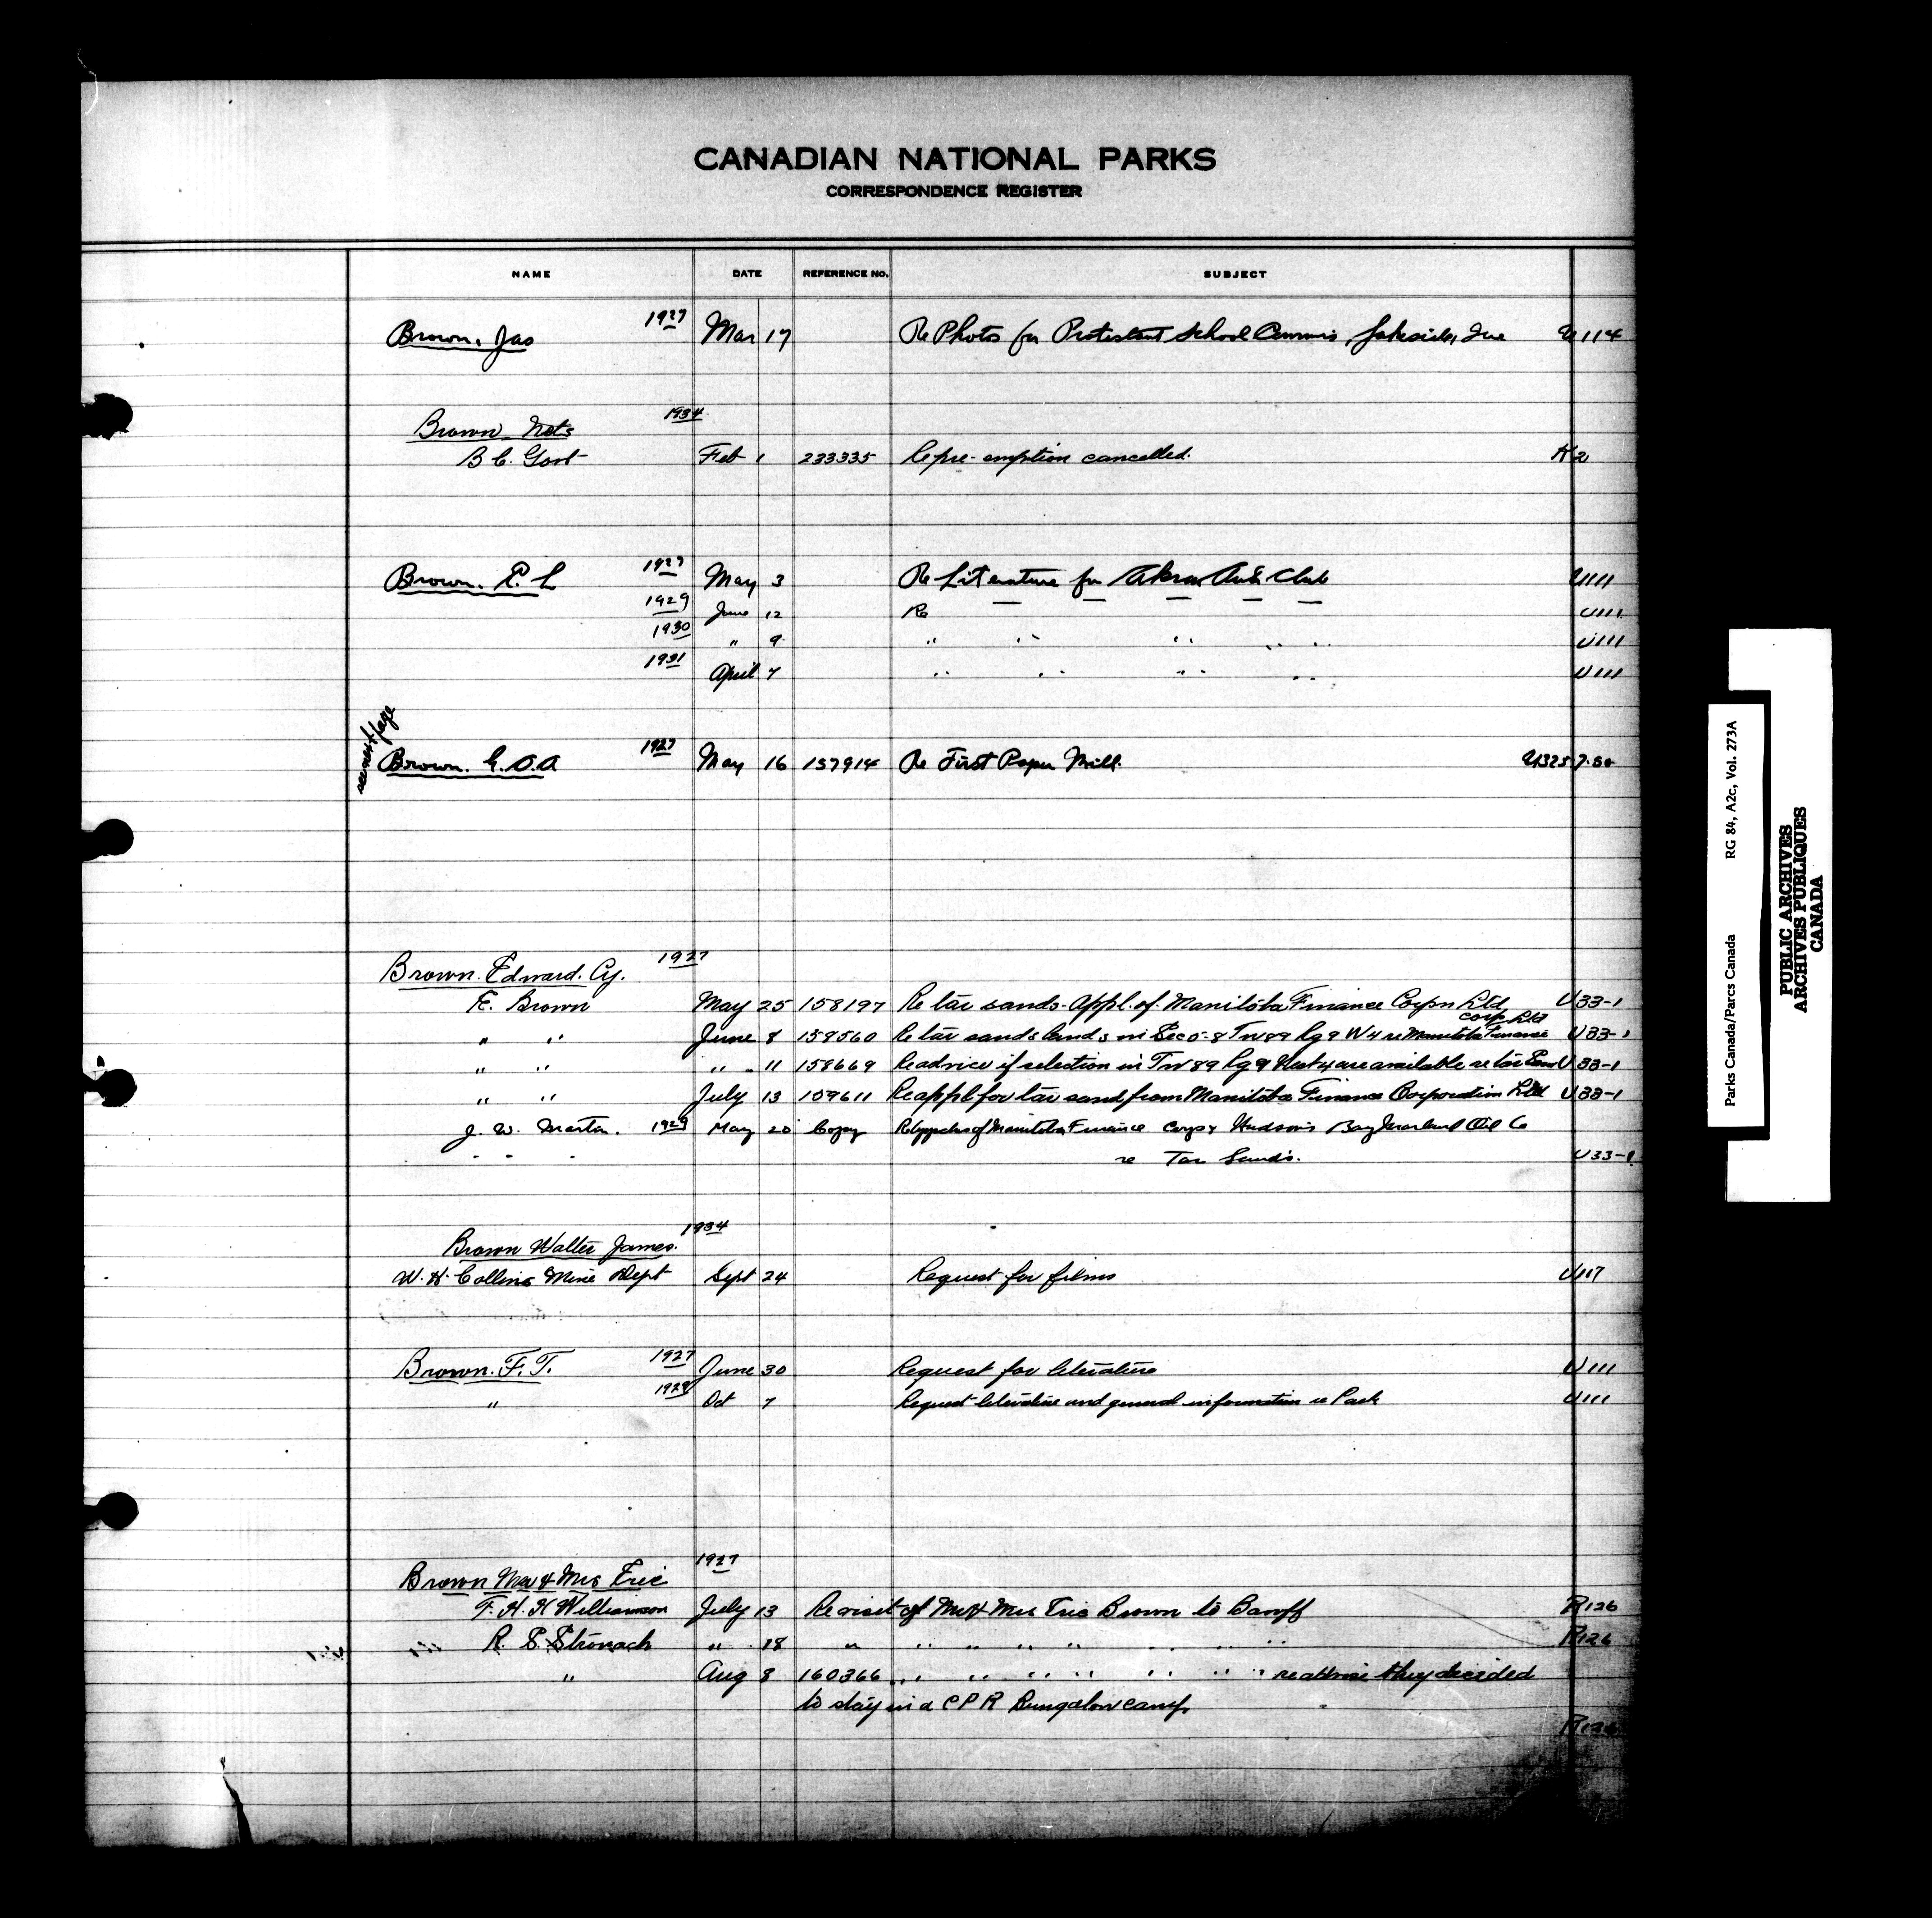 CANADIAN NATIONAL PARKS
CORRESPONDENCE REGISTER
NAME DATE REFERENCE No. SUBJECT
Brown, Jas 1927 Mar 17 Re Photos for Protestant School Lakeside, Que U114
1934
Brown Nets
B C. Govt Feb 1 233335 Re pre-emption cancelled. K2
Brown. P. L 1927 May 3 Re Literature for Akron Auto Club U111
1929 June 12 Re — — — — — U111
1930 " 9 " " " " " U111
1931 April 7 " " " " U111
see next page
Brown. G.O.A 1927 May 16 157914 Re First Paper Mill. U325
Brown. Edward. Cy. 1927
E. Brown May 25 158197 Re tar sands-appl. of Manitoba Finance Corpn Ltd U33-1
" " June 8 158560 Re tar sands lands in Sec 5-8 Tw 89 Rg 9 W4 re Manitoba Finance Corp Ltd U33-1
" " " 11 158669 Re advice if selection in Tw 89 Rg 9 West 4 are available re tar U33-1
" " July 13 159611 Re appl for tar sand from Manitoba Finance Corporation Ltd U33-1
J. W. Martin. 1929 May 20 Copy of Manitoba Finance Corp & Hudson's Bay Marland Oil Co
" " " re Tar Sands. U33-1
1934
Brown Walter James.
W. H. Collins Mine Dept Sept 24 Request for films U117
Brown. F. T. 1927 June 30 Request for literature U111
" 1929 Oct 7 Request literature and general information re Park U111
1927
Brown Mr & Mrs Eric
F. H. H Williamson July 13 Re visit of Mr & Mrs Eric Brown to Banff R126
R. S. Stronach " 18 " " " " " " " " R126
" Aug 8 160366 " " " " " " " re advise they decided
to stay in a CPR Bungalow camp. R126
Parks Canada/Parcs Canada RG 84, A2c, Vol. 273A
PUBLIC ARCHIVES
ARCHIVES PUBLIQUES
CANADA